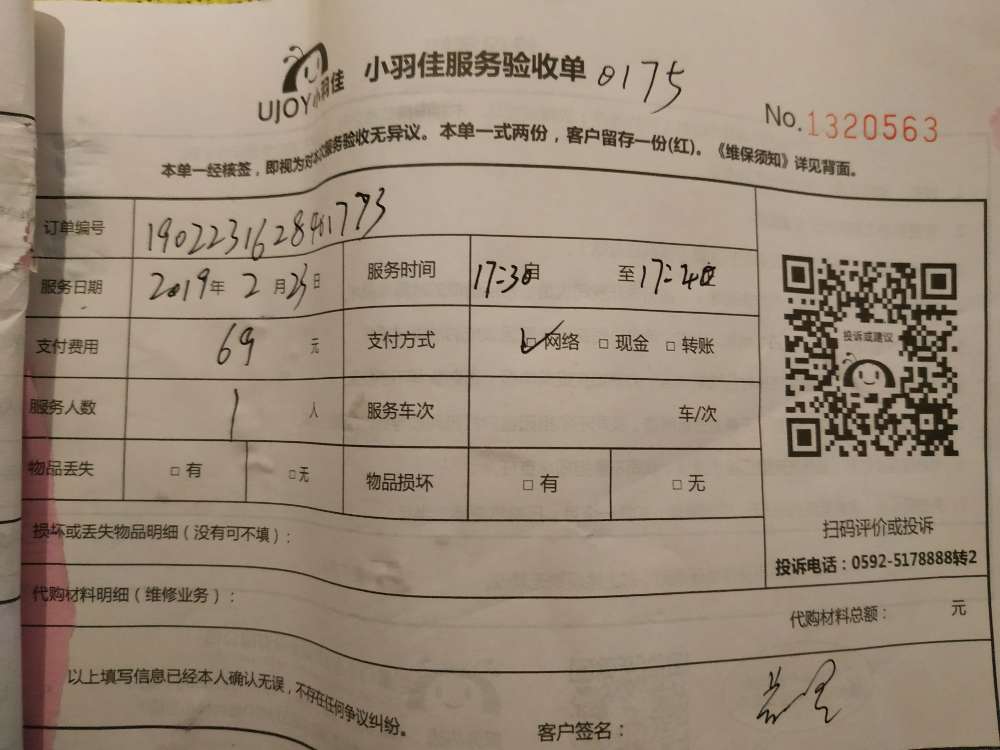 UJOY小羽佳 小羽佳服务验收单 0175
No.1320563
本单一经核签，即视为对本次服务验收无异议。本单一式两份，客户留存一份(红)。《维保须知》详见背面。
订单编号
服务日期 2019年 2月23日 服务时间 17:30 至 17:40
支付费用 69 元 支付方式 ☑网络 □现金 □转账
投诉或建议
服务人数 1 人 服务车次 车/次
物品丢失 □有 □无 物品损坏 □有 □无
扫码评价或投诉
损坏或丢失物品明细（没有可不填）：
投诉电话：0592-5178888转2
代购材料明细（维修业务）：
代购材料总额： 元
以上填写信息已经本人确认无误，不存在任何争议纠纷。
客户签名：